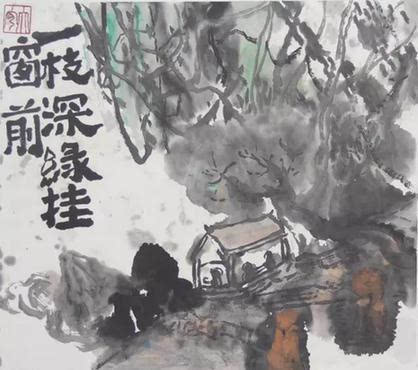 一枝深緑挂
窗前